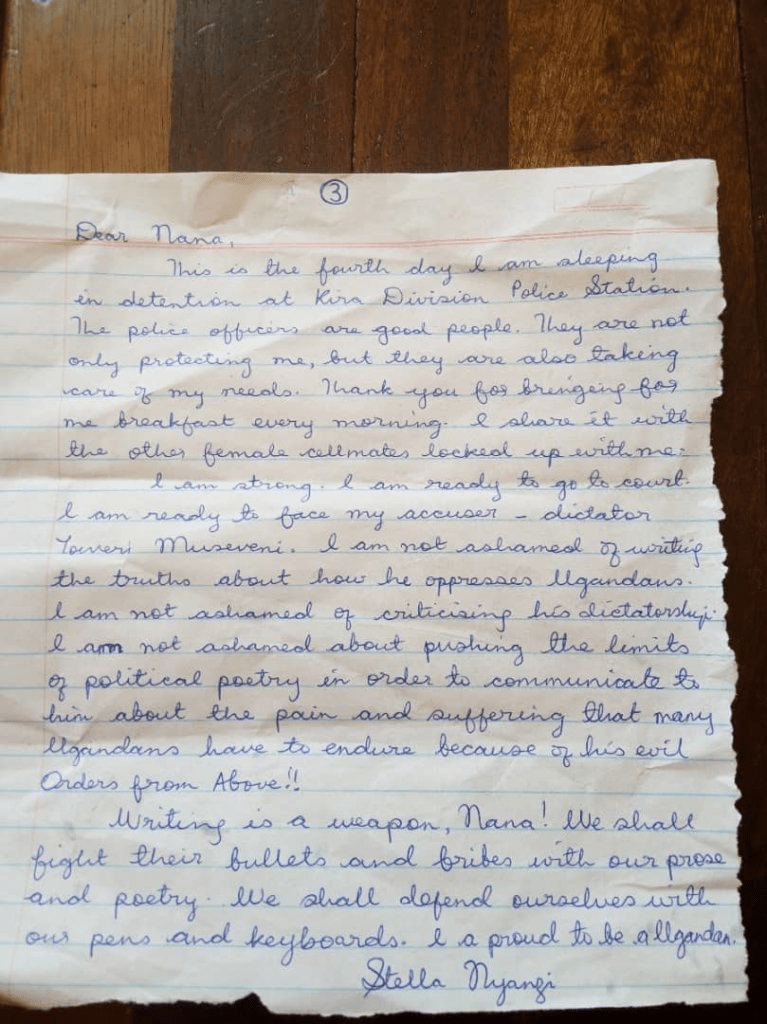 3
Dear Nana,
This is the fourth day I am sleeping
in detention at Kira Division Police Station.
The police officers are good people. They are not
only protecting me, but they are also taking
care of my needs. Thank you for bringeng for
me breakfast every morning. I share it with
the other female cellmates locked up with me.
I am strong. I am ready to go to court.
I am ready to face my accuser - dictator
Yoweri Museveni. I am not ashamed of writing
the truths about how he oppresses Ugandans.
I am not ashamed of criticising his dictatorship.
I am not ashamed about pushing the limits
of political poetry in order to communicate to
him about the pain and suffering that many
Ugandans have to endure because of his evil
Orders from Above!!
Writing is a weapon, Nana! We shall
fight their bullets and bribes with our prose
and poetry. We shall defend ourselves with
our pens and keyboards. I a proud to be a Ugandan.
Stella Nyanzi